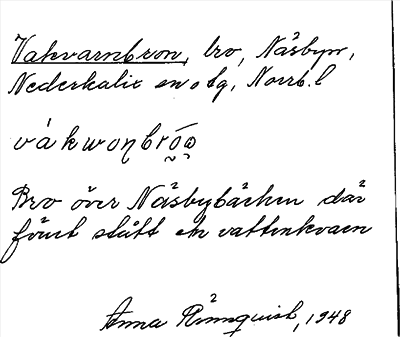 Vakvarnbron, bro, Näsbyn,
Nederkalix sn o tg, Norrb. l
vákwoɳbróo̯
Bro över Näsbybäcken där
förut stått en vattenkvarn
Anna Rönnquist, 1948